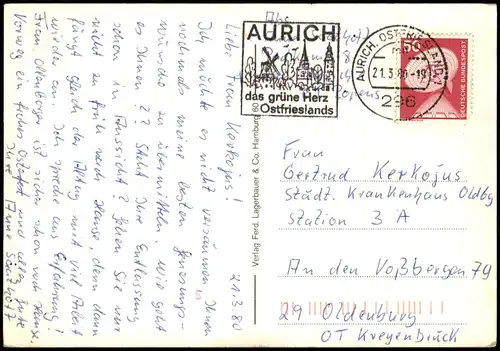 21.3.80
Liebe Frau Kerkojus!
Ich möchte es nicht versäumen Ihnen
noch meine besten Genesungs-
wünsche zu übermitteln. Wie geht
es Ihnen?? Steht Ihre Entlassung
schon in Aussicht? Gehen Sie nur
nicht zu früh nach Hause, denn dann
fängt gleich der Alltag mit viel Arbeit
wieder an. Ich spreche aus Erfahrung!
Frau Oltenburger ist sicher schon zu Hause.
Vorweg ein frohes Osterfest und alles Gute
Ihre Anne
Abs.
AURICH
das grüne Herz
Ostfrieslands
AURICH, OSTFRIESLAND 1
21.3.80-19
296
50
DEUTSCHE BUNDESPOST
Verlag Ferd. Lagerbauer & Co. Hamburg 60
Frau
Gertrud Kerkojus
Städt. Krankenhaus Oldbg
Station 3 A
An den Voßbergen 79
29 Oldenburg
OT Kreyenbrück